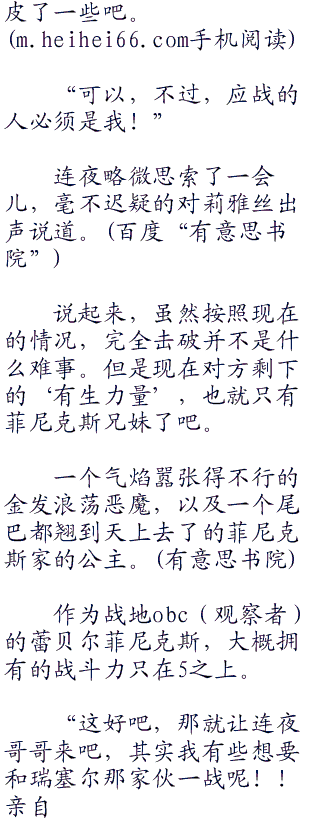 皮了一些吧。
(m.heihei66.com手机阅读)
“可以，不过，应战的
人必须是我！”
连夜略微思索了一会
儿，毫不迟疑的对莉雅丝出
声说道。(百度“有意思书
院”)
说起来，虽然按照现在
的情况，完全击破并不是什
么难事。但是现在对方剩下
的‘有生力量’，也就只有
菲尼克斯兄妹了吧。
一个气焰嚣张得不行的
金发浪荡恶魔，以及一个尾
巴都翘到天上去了的菲尼克
斯家的公主。(有意思书院)
作为战地obc（观察者）
的蕾贝尔菲尼克斯，大概拥
有的战斗力只在5之上。
“这好吧，那就让连夜
哥哥来吧，其实我有些想要
和瑞塞尔那家伙一战呢！！
亲自